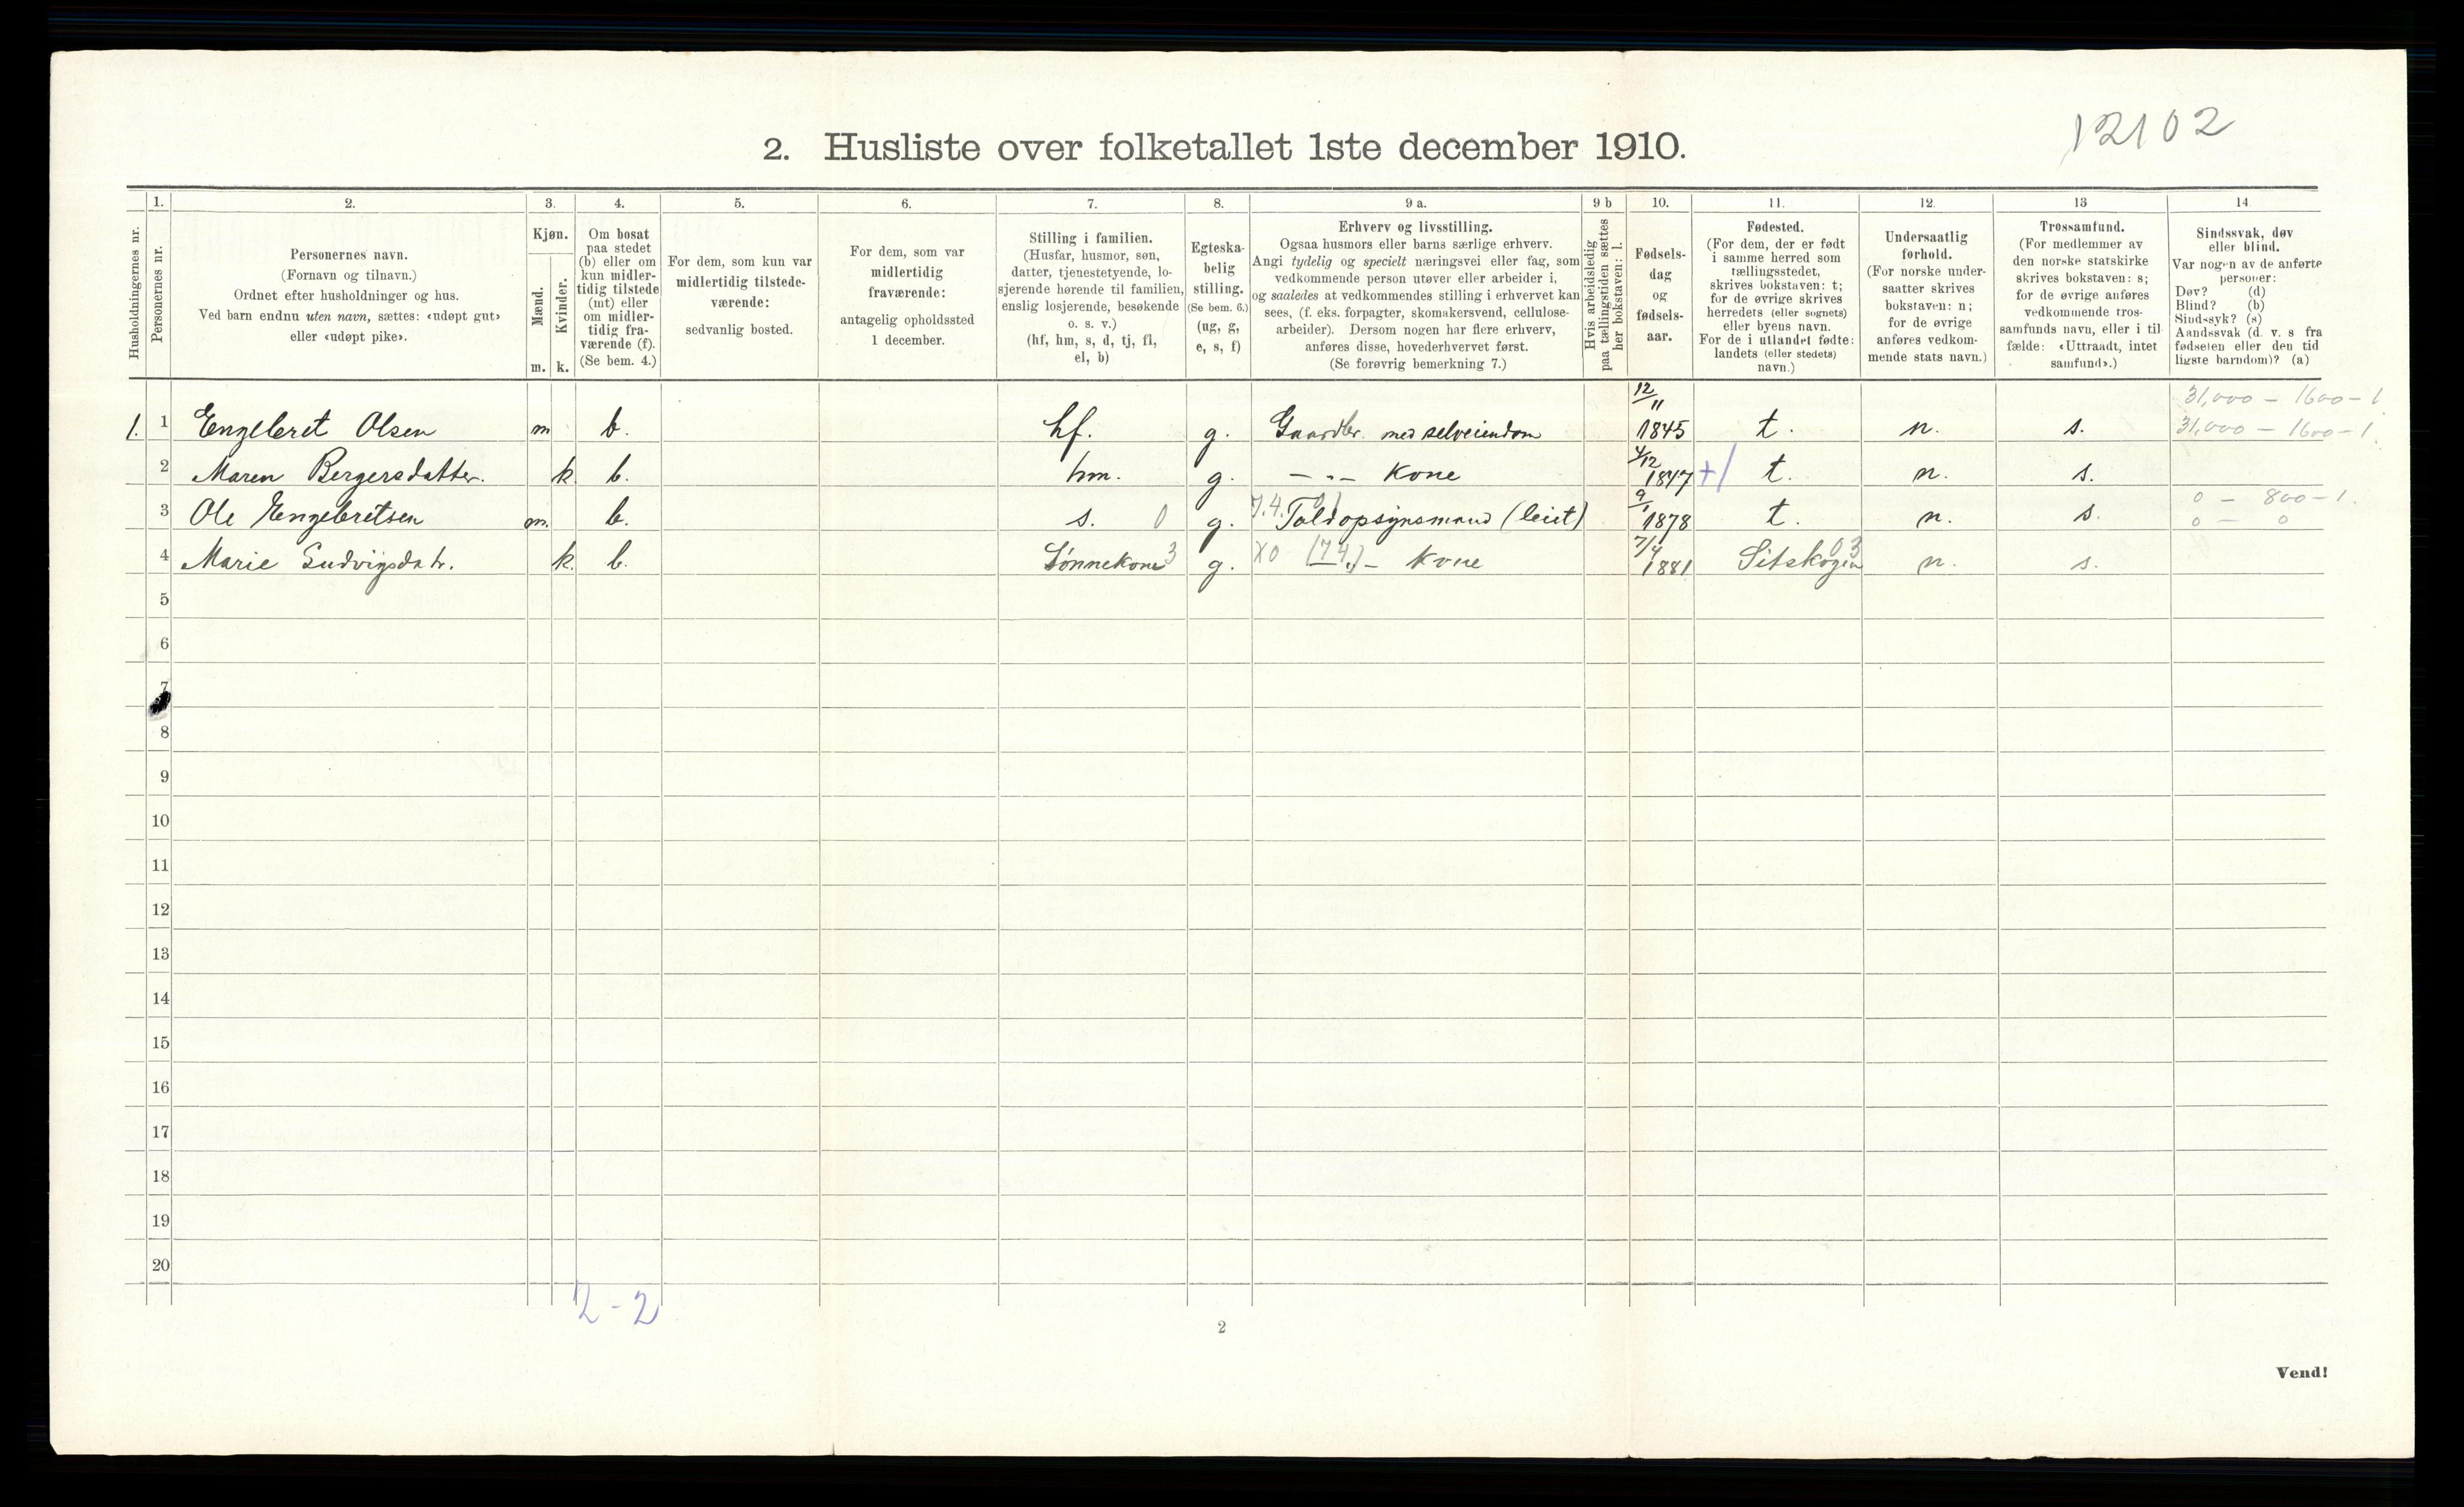 12102
2. Husliste over folketallet 1ste december 1910.
Husholdningernes nr.
1.
Personernes nr.
2.
Personernes navn.
(Fornavn og tilnavn.)
Ordnet efter husholdninger og hus.
Ved barn endnu uten navn, sættes: «udøpt gut»
eller «udøpt pike».
3.
Kjøn.
Mænd.
Kvinder.
m. k.
4.
Om bosat
paa stedet
(b) eller om
kun midler-
tidig tilstede
(mt) eller
om midler-
tidig fra-
værende (f).
(Se bem. 4.)
5.
For dem, som kun var
midlertidig tilstede-
værende:
sedvanlig bosted.
6.
For dem, som var
midlertidig
fraværende:
antagelig opholdssted
1 december.
7.
Stilling i familien.
(Husfar, husmor, søn,
datter, tjenestetyende, lo-
sjerende hørende til familien,
enslig losjerende, besøkende
o. s. v.)
(hf, hm, s, d, tj, fl,
el, b)
8.
Egteska-
belig
stilling.
(Se bem. 6.)
(ug, g,
e, s, f)
9 a.
Erhverv og livsstilling.
Ogsaa husmors eller barns særlige erhverv.
Angi tydelig og specielt næringsvei eller fag, som
vedkommende person utøver eller arbeider i,
og saaledes at vedkommendes stilling i erhvervet kan
sees, (f. eks. forpagter, skomakersvend, cellulose-
arbeider). Dersom nogen har flere erhverv,
anføres disse, hovederhvervet først.
(Se forøvrig bemerkning 7.)
9 b
Hvis arbeidsledig
paa tællingstiden sættes
her bokstaven: l.
10.
Fødsels-
dag
og
fødsels-
aar.
11.
Fødested.
(For dem, der er født
i samme herred som
tællingsstedet,
skrives bokstaven: t;
for de øvrige skrives
herredets (eller sognets)
eller byens navn.
For de i utlandet fødte:
landets (eller stedets)
navn.)
12.
Undersaatlig
forhold.
(For norske under-
saatter skrives
bokstaven: n;
for de øvrige
anføres vedkom-
mende stats navn.)
13
Trossamfund.
(For medlemmer av
den norske statskirke
skrives bokstaven: s;
for de øvrige anføres
vedkommende tros-
samfunds navn, eller i til-
fælde: «Uttraadt, intet
samfund».)
14
Sindssvak, døv
eller blind.
Var nogen av de anførte
personer:
Døv? (d)
Blind? (b)
Sindssyk? (s)
Aandssvak (d. v. s fra
fødselen eller den tid
ligste barndom)? (a)
31,000 - 1600 - 1
1. 1 Engebret Olsen m b. hf. g. Gaardbr. med selveiendom 12/11 1845 t. n. s. 31,000 - 1600 - 1.
2 Maren Bergersdatter. k b. hm. g. - " - Kone 4/12 1847 t. n. s.
0 - 800 - 1.
3 Ole Engebretsen m. b. s. 0 g. 7.4. Toldopsynsmand (leiet) 9/1 1878 t. n. s. 0 - 0
4 Marie Ludvigsdatr. k. b. Sønnekone 3 g. X0 (74.) - Kone 7/4 1881 Sitskogen 03 n. s.
5
6
7
8
9
10
11
12
13
14
15
16
17
18
19
20
2 - 2
2
Vend!